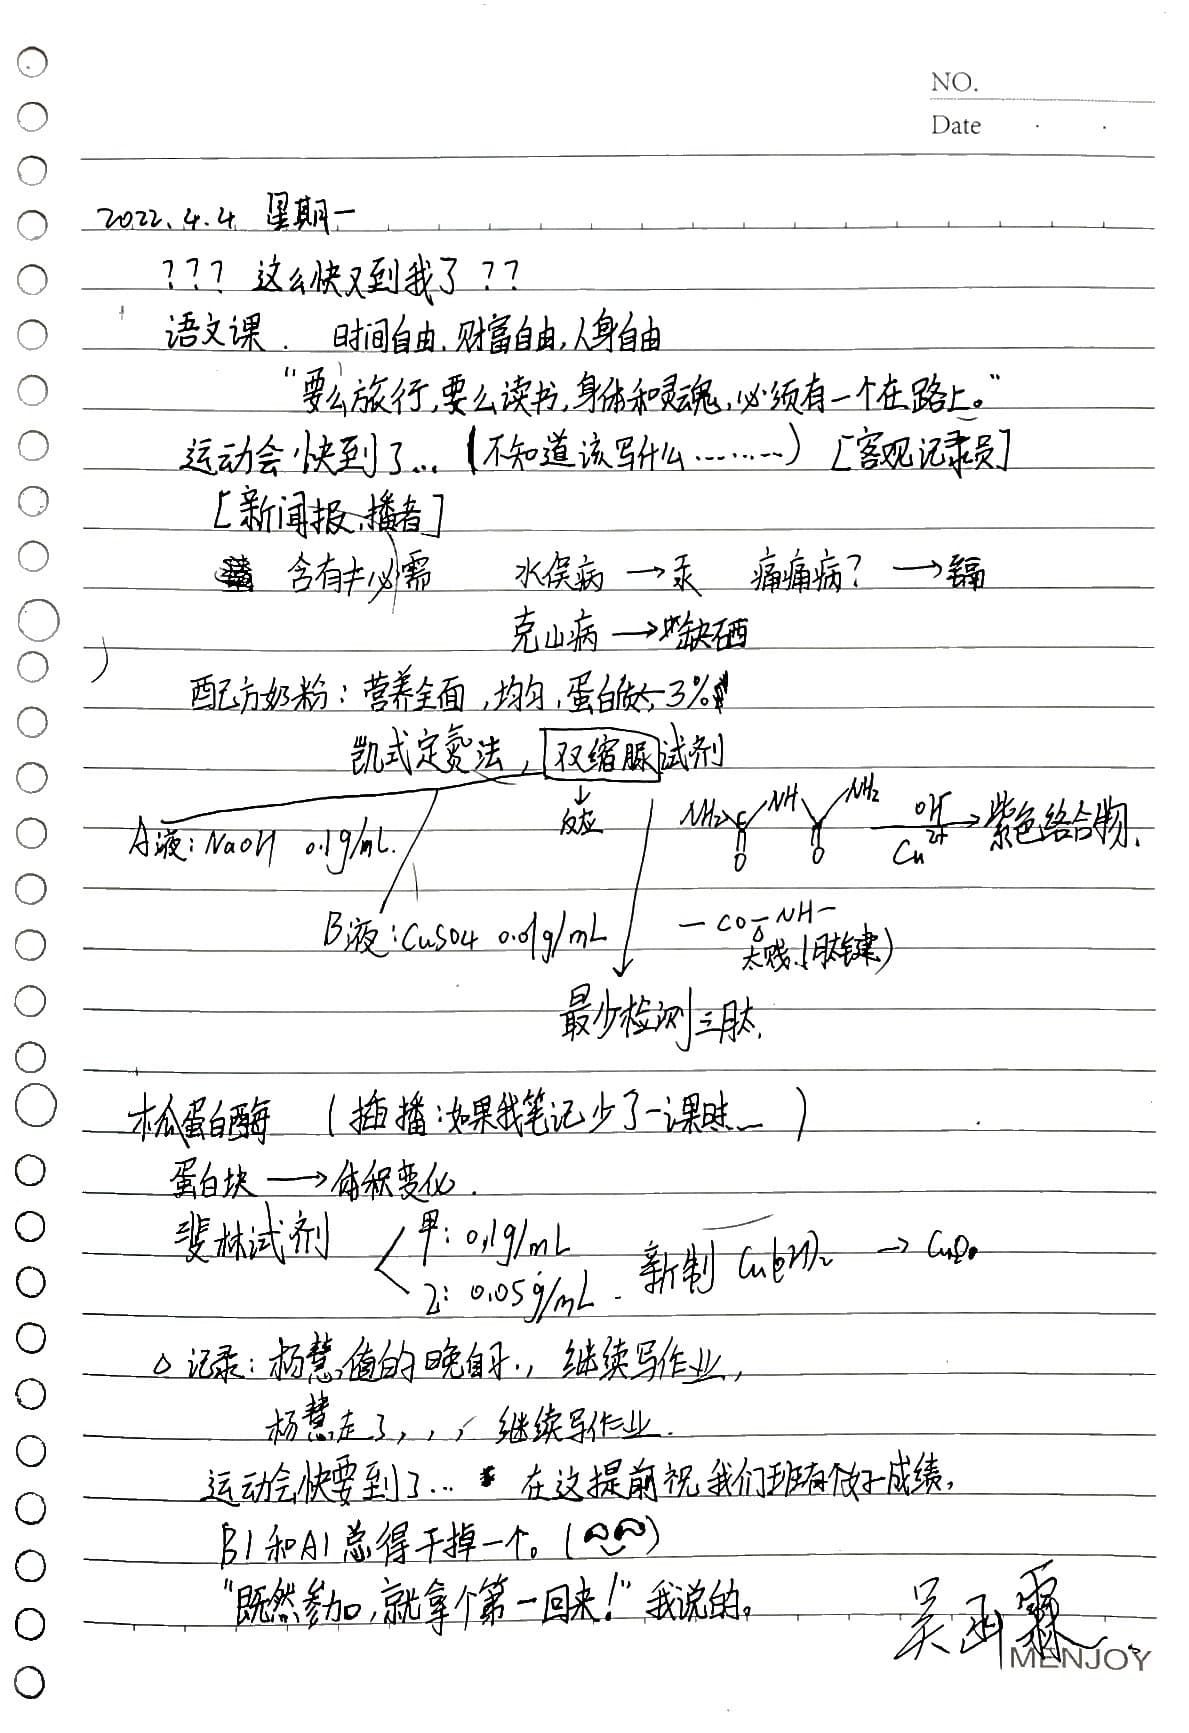 NO.
Date
2022.4.4 星期一
??? 这么快又到我了 ??
语文课. 时间自由,财富自由,人身自由
"要么旅行,要么读书,身体和灵魂,必须有一个在路上。"
运动会快到了… (不知道该写什么………) [客观记录员]
[新闻报播者]
含有非必需 水俣病 → 汞 痛痛病? → 镉
克山病 → 缺硒
配方奶粉: 营养全面,均匀,蛋白质 3%
凯式定氮法, 双缩脲试剂
反应
NH2 C NH NH2 OH⁻ Cu2+ → 紫色络合物.
O O
A液: NaOH 0.1g/mL.
B液: CuSO4 0.01g/mL
—CO—NH—
太贱.(肽键)
最少检测三肽.
木瓜蛋白酶 (插播:如果我笔记少了一课时…)
蛋白块 → 体积变化.
斐林试剂 甲: 0.1g/mL
乙: 0.05g/mL. 新制 Cu(OH)2 → Cu2O
△ 记录: 杨慧值的晚自习., 继续写作业,
杨慧走了,,, 继续写作业.
运动会快要到了… 在这提前祝我们班有个好成绩,
B1和A1总得干掉一个。
"既然参加,就拿个第一回来!" 我说的。
吴雨霖
MENJOY